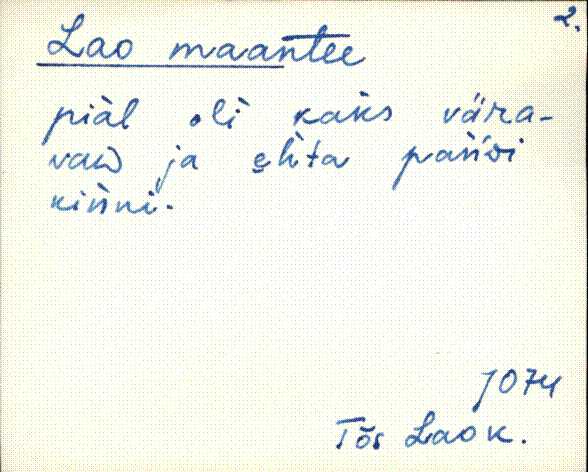 2.
Lao maantee
piäl oli kaks vära-
vaw ja ehta pańdi
kińni.
Tõs Lao k.